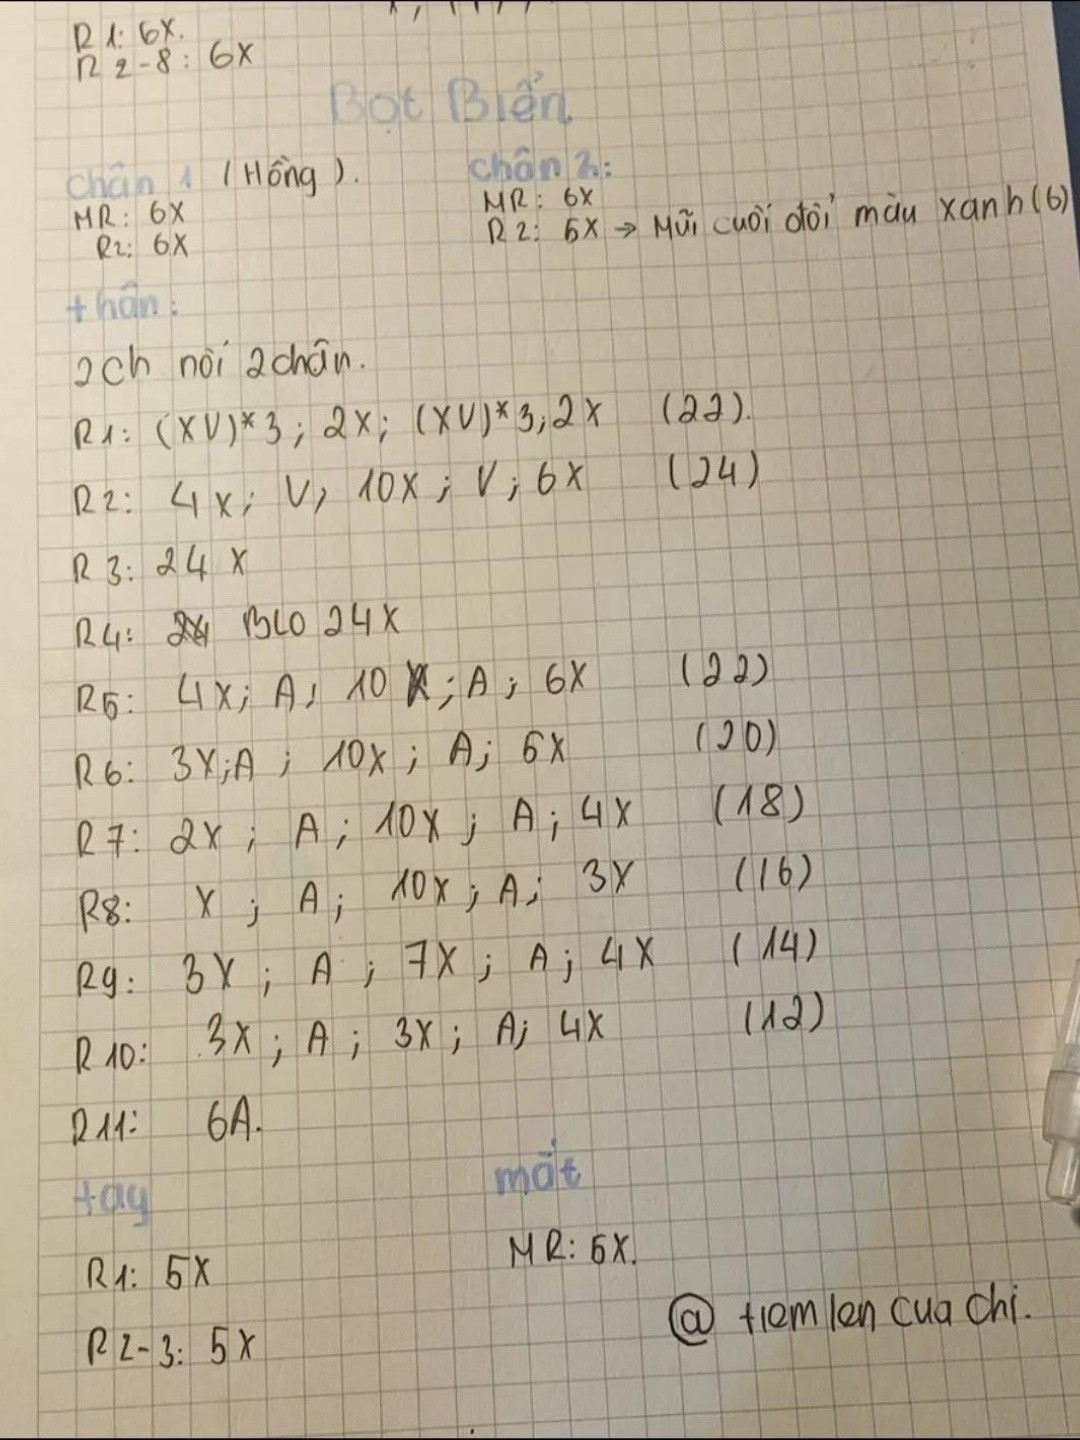 R1: 6X.
R 2-8: 6X
Bọt Biển
Chân 1 (Hồng).
MR: 6X
R2: 6X
Chân 2:
MR: 6X
R2: 5X → Mũi cuối đổi màu xanh (6)
thân:
2ch nối 2 chân.
R1: (XV)*3; 2X; (XV)*3; 2X (22).
R2: 4X; V; 10X; V; 6X (24)
R3: 24 X
R4: BLO 24X
R5: 4X; A; 10 X; A; 6X (22)
R6: 3X; A; 10X; A; 5X (20)
R7: 2X; A; 10X; A; 4X (18)
R8: X; A; 10X; A; 3X (16)
R9: 3X; A; 7X; A; 4X (14)
R10: 3X; A; 3X; A; 4X (12)
R11: 6A.
tay
R1: 5X
R2-3: 5X
mắt
MR: 5X.
@ tiem len cua chi.